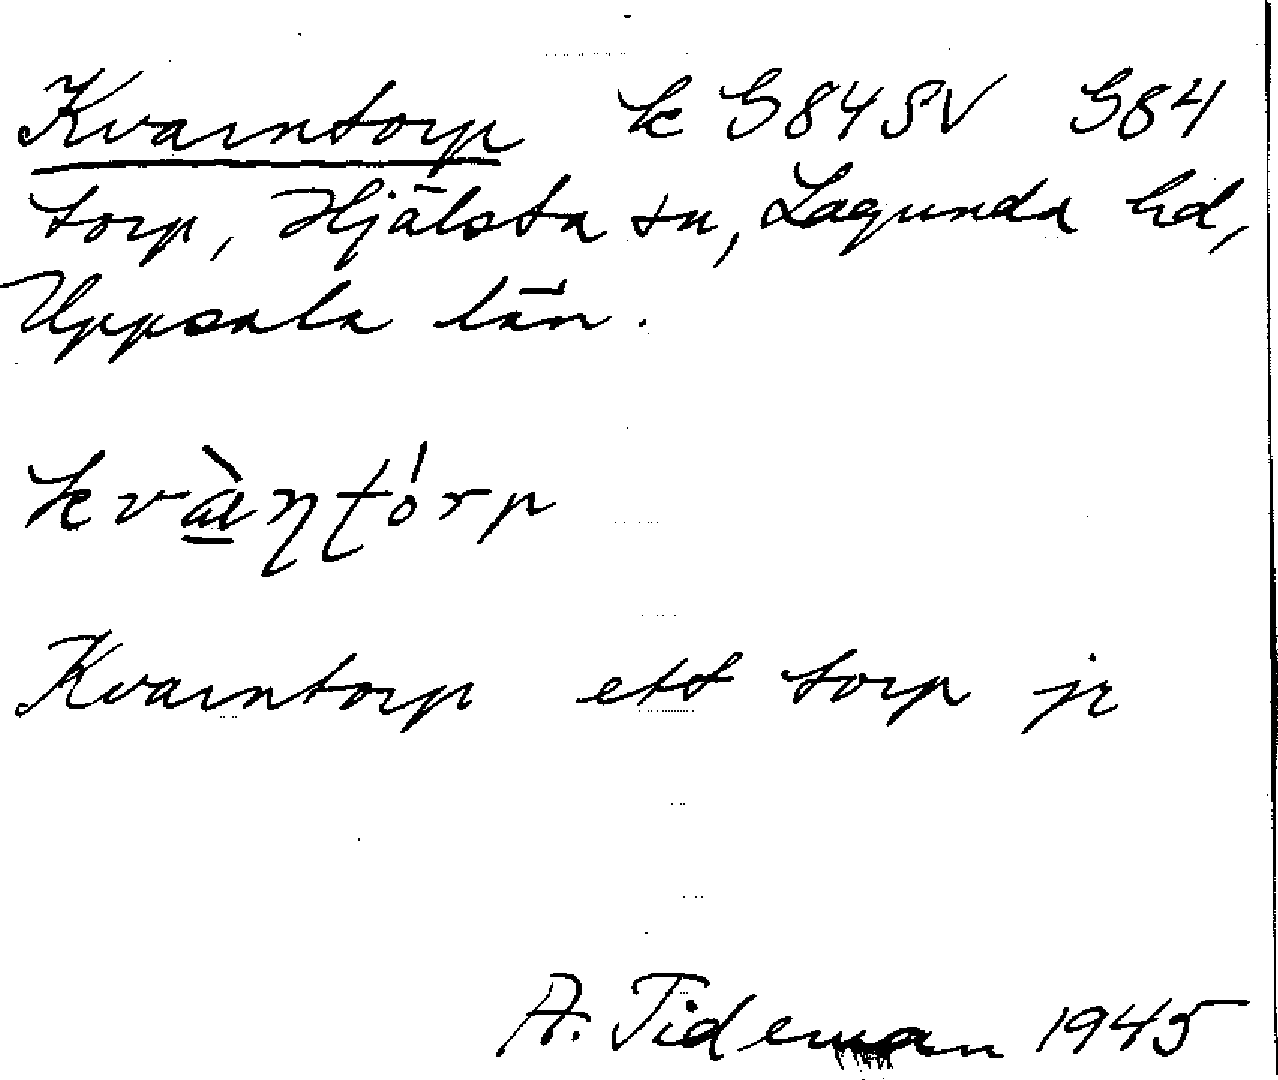 Kvarntorp k G84SV G84
torp, Hjälsta sn, Lagunda hd,
Uppsala län.
Kvarntorp ett torp jr
A. Tideman 1945